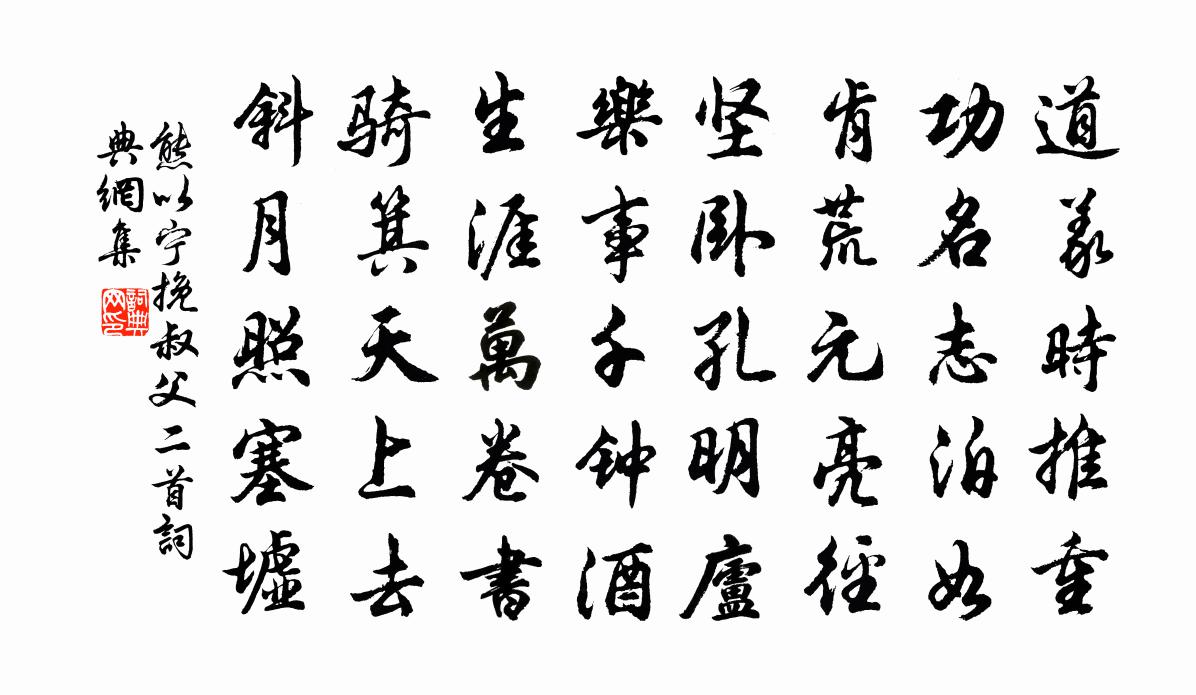 道義時推重
功名志泊如
肯荒元亮徑
坚卧孔明廬
樂事千钟酒
生涯萬卷書
騎箕天上去
斜月照塞墟
熊以宁挽叔父二首詞
典網集
詞典網印